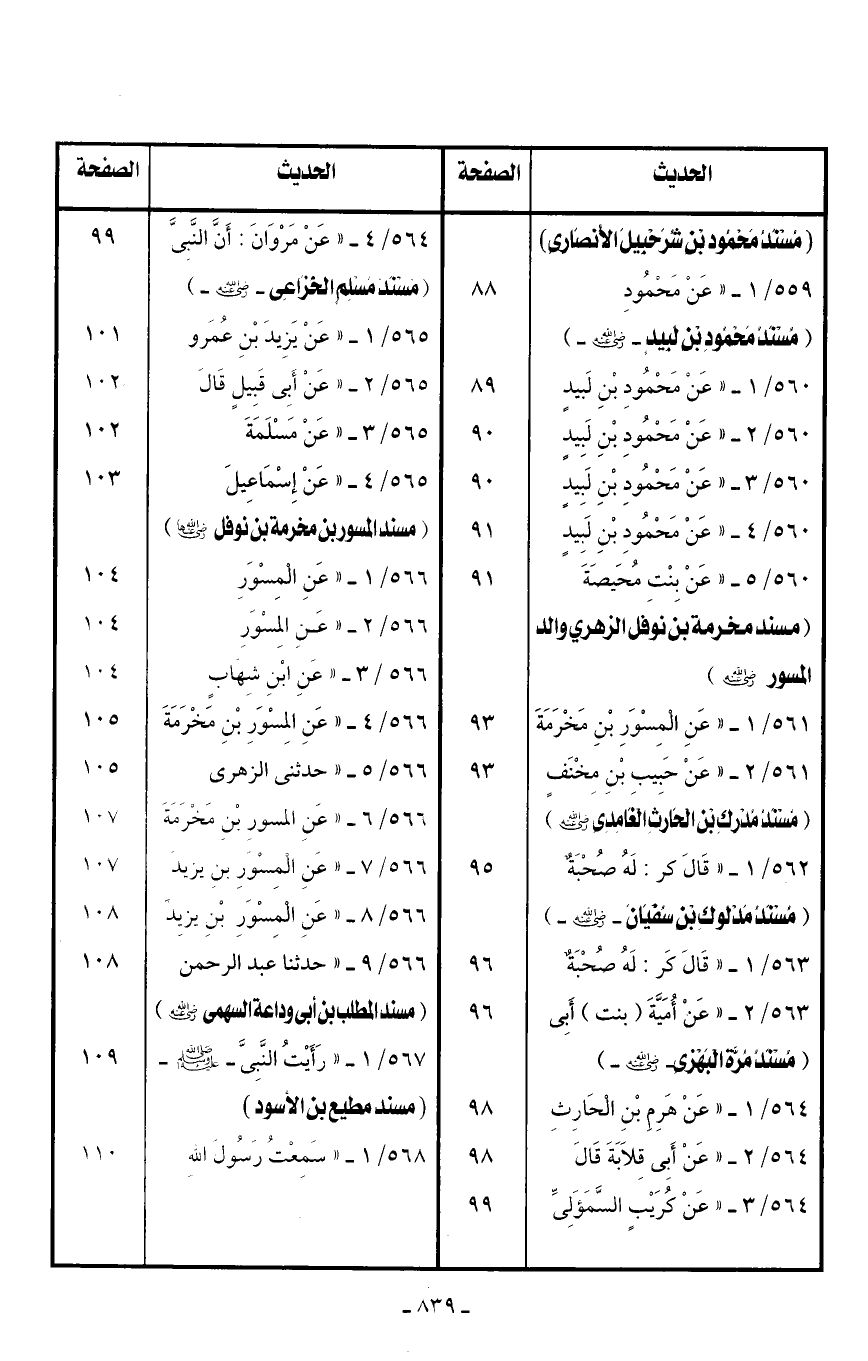 الحديث الصفحة
( مُسْنَدُ مَحْمُود بْن شُرَحْبيلَ الأنصَارى)
٥٥٩/ ١ ـ « عَنْ مَحْمُودِ ٨٨
( مُسْنَدُ مَحْمُود بْن لَبيد ـ رضي الله عنه ـ )
٥٦٠/ ١ ـ « عَنْ مَحْمُودِ بْنِ لَبِيدٍ ٨٩
٥٦٠/ ٢ ـ « عَنْ مَحْمُودِ بْنِ لَبِيدٍ ٩٠
٥٦٠/ ٣ ـ « عَنْ مَحْمُودِ بْنِ لَبِيدٍ ٩٠
٥٦٠/ ٤ ـ « عَنْ مَحْمُودِ بْنِ لَبِيدٍ ٩١
٥٦٠/ ٥ ـ « عَنْ بِنْتِ مُحَيصَةَ ٩١
( مسند مخرمة بن نوفل الزهري والد
المسور رضي الله عنه )
٥٦١/ ١ ـ « عَنِ الْمِسْوَرِ بْنِ مَخْرَمَةَ ٩٣
٥٦١/ ٢ ـ « عَنْ حَبِيبِ بْنِ مِخْنَفٍ ٩٣
( مُسْنَدُ مُدْرك بْن الحَارث الغَامدى رضي الله عنه )
٥٦٢/ ١ ـ « قَالَ كر : لَهُ صُحْبَةٌ ٩٥
( مُسْنَدُ مَدْلوك بْن سُفْيَانَ ـ رضي الله عنه ـ )
٥٦٣/ ١ ـ « قَالَ كَر : لَهُ صُحْبَةٌ ٩٦
٥٦٣/ ٢ ـ « عَنْ أُمَيَّةَ ( بنت ) أَبِى ٩٦
( مُسْنَدُ مُرَّة الْبَهْزِىِّ ـ رضي الله عنه ـ )
٥٦٤/ ١ ـ « عَنْ هَرِمِ بْنِ الْحَارِثِ ٩٨
٥٦٤/ ٢ ـ « عَنْ أَبِى قِلاَبَةَ قَالَ ٩٨
٥٦٤/ ٣ ـ « عَنْ كُرَيْبٍ السَّمَؤَلِىِّ ٩٩
الحديث الصفحة
٥٦٤/ ٤ ـ « عَنْ مَرْوَانَ : أَنَّ النَّبِىَّ ٩٩
( مُسْنَدُ مُسْلم الخُزَاعِى ـ رضي الله عنه ـ )
٥٦٥/ ١ ـ « عَنْ يَزِيدَ بْنِ عُمَرو ١٠١
٥٦٥/ ٢ ـ « عَنْ أَبِى قَبِيلٍ قَالَ ١٠٢
٥٦٥/ ٣ ـ « عَنْ مَسْلَمَةَ ١٠٢
٥٦٥/ ٤ ـ « عَنْ إِسْمَاعِيلَ ١٠٣
( مسند المسور بن مخرمة بن نوفل رضي الله عنهما )
٥٦٦/ ١ ـ « عَنِ الْمِسْوَرِ ١٠٤
٥٦٦/ ٢ ـ « عَـنِ المِسْوَرِ ١٠٤
٥٦٦ /٣ ـ « عَنِ ابْنِ شِهَابٍ ١٠٤
٥٦٦/ ٤ ـ « عَنِ المِسْوَرِ بْنِ مَخْرَمَةَ ١٠٥
٥٦٦/ ٥ ـ « حدثنى الزهرى ١٠٥
٥٦٦/ ٦ ـ « عَنِ المسورِ بْنِ مَخْرَمَةَ ١٠٧
٥٦٦/ ٧ ـ « عَنِ الْمِسْوَرِ بنِ يزيدَ ١٠٧
٥٦٦/ ٨ ـ « عَنِ الْمِسْوَرِ بْنِ يزيدَ ١٠٨
٥٦٦/ ٩ ـ « حدثنا عبد الرحمن ١٠٨
( مسند المطلب بن أبى وداعة السهمى رضي الله عنه )
٥٦٧/ ١ ـ « رَأَيْتُ النَّبِىَّ ـ صلى الله عليه وسلم ـ ١٠٩
( مسند مطيع بن الأسود )
٥٦٨/ ١ ـ « سَمِعْتُ رَسُولَ اللهِ ١١٠
ـ ٨٣٩ ـ